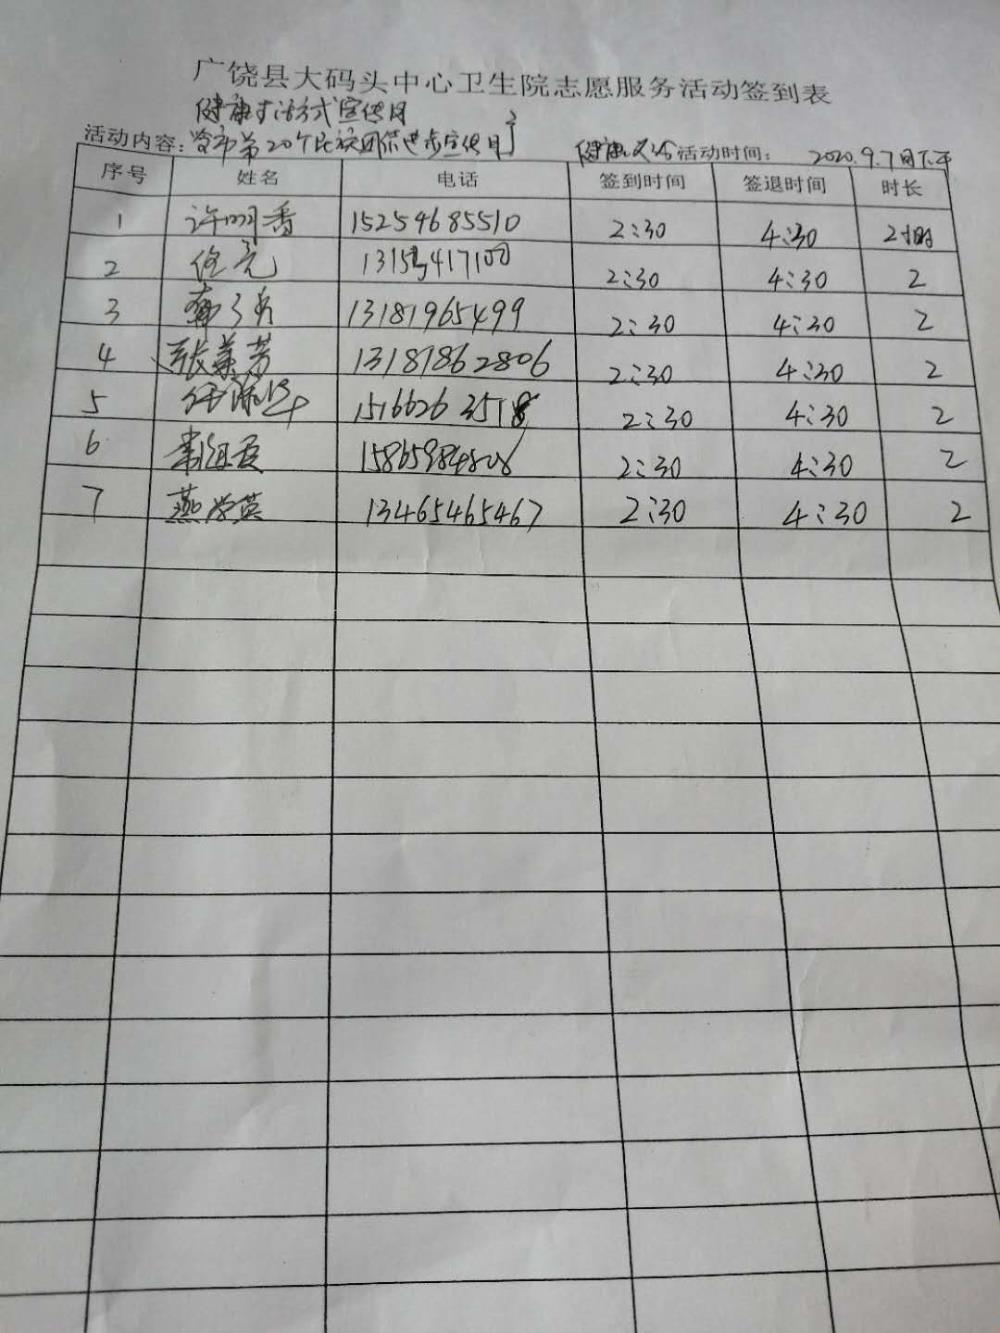 广饶县大码头中心卫生院志愿服务活动签到表
健康生活方式宣传月
活动内容：省市第20个民族团结进步宣传月 健康义诊 活动时间： 2020.9.7日下午
序号 姓名 电话 签到时间 签退时间 时长
1 许明香 15254685510 2:30 4:30 2小时
2 任亮 2:30 4:30 2
3 13181965499 2:30 4:30 2
4 张美芳 13181862806 2:30 4:30 2
5 2:30 4:30 2
6 2:30 4:30 2
7 燕学英 13465465467 2:30 4:30 2